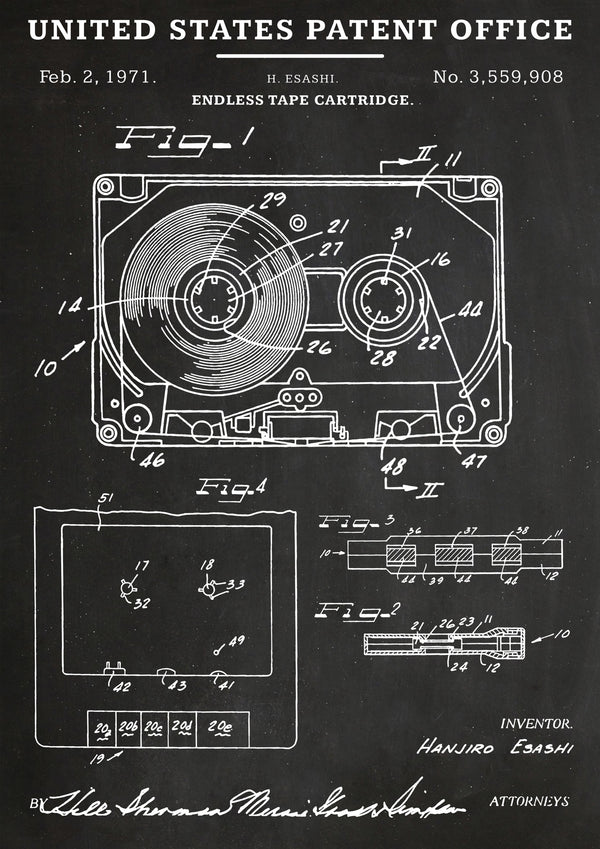 UNITED STATES PATENT OFFICE
Feb. 2, 1971. H. ESASHI. No. 3,559,908
ENDLESS TAPE CARTRIDGE.
Fig. 1
II
11
29
21
31
27
16
14
44
10
22
26
28
46
48
47
II
Fig. 4
51
17
18
33
32
49
42
43
41
20a 20b 20c 20d 20e
19
Fig. 3
36 37 38 11
10
44 39 44 44 12
Fig. 2
21 26 23 11
10
24 12
INVENTOR.
HANJIRO ESASHI
BY Hill Sherman Meroni Gross & Simpson ATTORNEYS